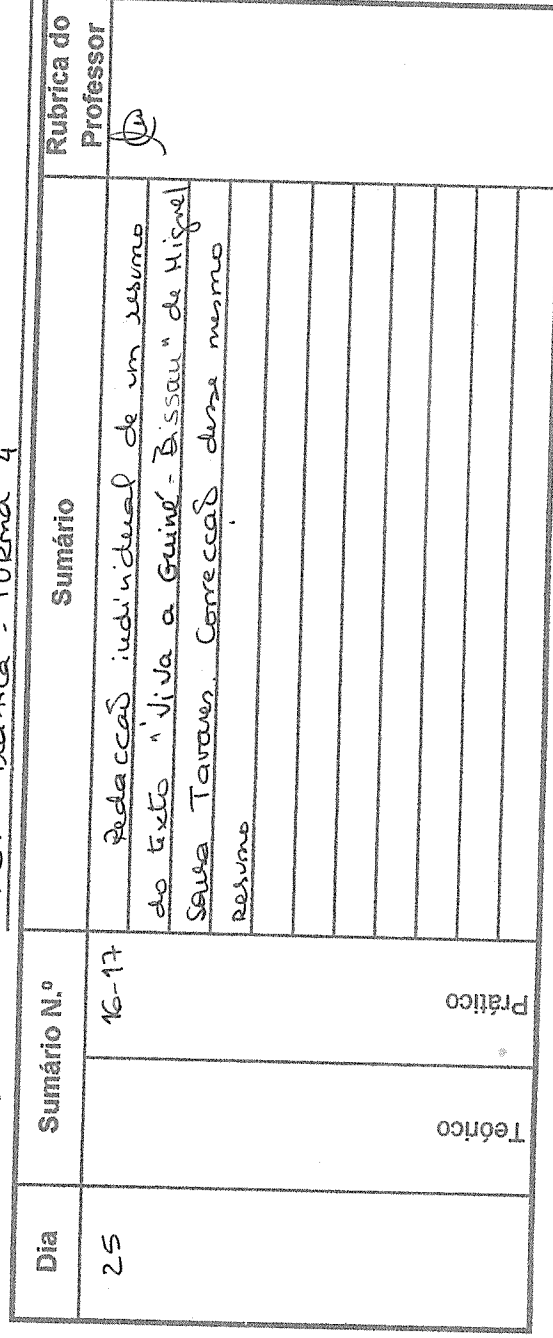 TURMA 4
Dia
Sumário N.º
Sumário
Rubrica do
Professor
25
16-17
Redacção individual de um resumo
do texto "Viva a Guiné-Bissau" de Miguel
Sousa Tavares. Correcção desse mesmo
resumo
Teórico
Prático